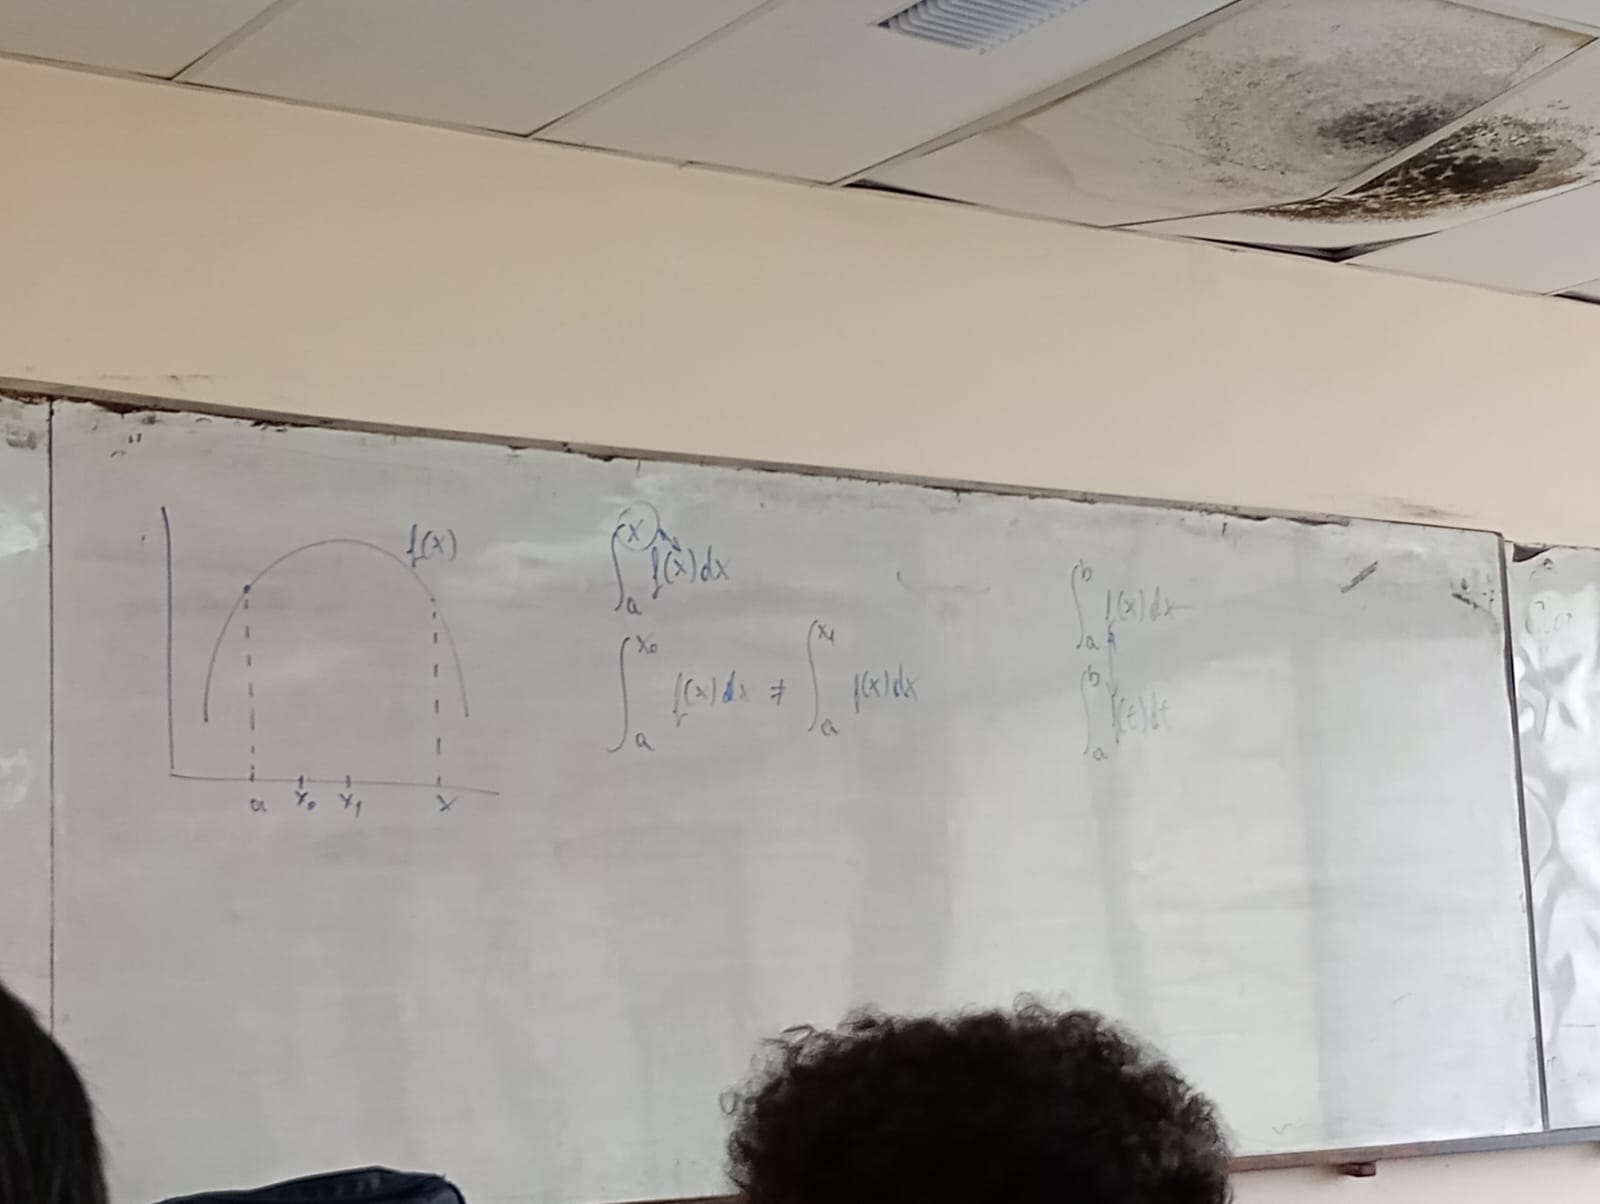 f(x)
a x₀ x₁ x
∫ₐˣ f(x)dx
∫ₐˣ⁰ f(x)dx ≠ ∫ₐˣ¹ f(x)dx
∫ₐᵇ f(x)dx
∫ₐᵇ f(t)dt